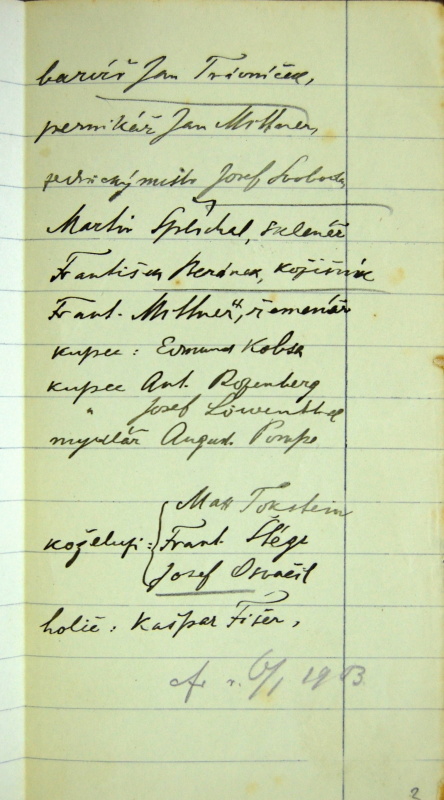 barvíř Jan Trávníček,
perníkář Jan Mittner,
zednický mistr Josef Svoboda
Martin Splíchal, sklenář
František Beránek, kožišník
Frant. Mittner, řemenář
kupec: Edmund Kobsa
kupec Ant. Rozenberg
" Josef Löwenthal
mydlář August. Pompe
Mat Tokstein
koželuzi: Frant Štégr
Josef Osvačil
holič: Kašpar Fišer,
6/1 1903
2